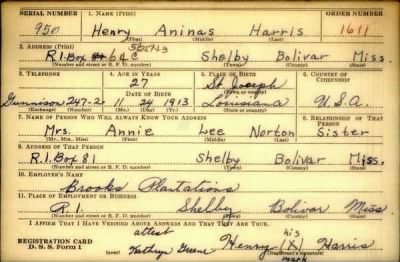 SERIAL NUMBER 1. NAME (Print) ORDER NUMBER
950 Henry Aninas Harris 1611
(First) (Middle) (Last)
2. ADDRESS (Print) 
R.1 Box 64C Shelby Bolivar Miss.
(Number and street or R. F. D. number) (Town) (County) (State)
3. TELEPHONE 4. AGE IN YEARS 5. PLACE OF BIRTH 6. COUNTRY OF CITIZENSHIP
27 St. Joseph
DATE OF BIRTH (Town or county)
Gunnison 247-2 11 24 1913 Louisiana U.S.A.
(Exchange) (Number) (Mo.) (Day) (Yr.) (State or country)
7. NAME OF PERSON WHO WILL ALWAYS KNOW YOUR ADDRESS 8. RELATIONSHIP OF THAT PERSON
Mrs. Annie Lee Norton Sister
(Mr., Mrs., Miss) (First) (Middle) (Last)
9. ADDRESS OF THAT PERSON
R.1. Box 81 Shelby Bolivar Miss.
(Number and street or R. F. D. number) (Town) (County) (State)
10. EMPLOYER'S NAME
Brooks Plantations
11. PLACE OF EMPLOYMENT OR BUSINESS
R.1. Shelby Bolivar Miss
(Number and street or R. F. D. number) (Town) (County) (State)
I AFFIRM THAT I HAVE VERIFIED ABOVE ANSWERS AND THAT THEY ARE TRUE.
attest his
REGISTRATION CARD Kathryn Greene Henry (X) Harris
D. S. S. FORM 1 (Registrant's signature)
mark